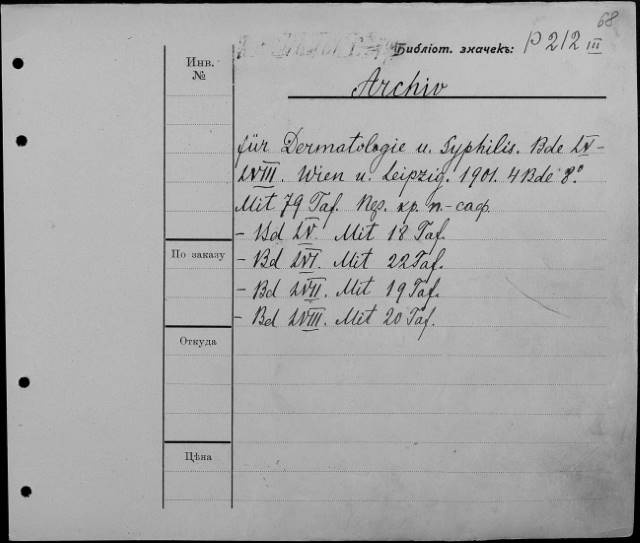 68
Библіот. значекъ: P 212 III
Инв. №
Archiv
für Dermatologie u. Syphilis. Bde LV-
LVIII. Wien u. Leipzig. 1901. 4 Bde 8°.
Mit 79 Taf. Пер. кр. п.-саф.
- Bd LV. Mit 18 Taf.
По заказу
- Bd LVI. Mit 22 Taf.
- Bd LVII. Mit 19 Taf.
- Bd LVIII. Mit 20 Taf.
Откуда
Цѣна